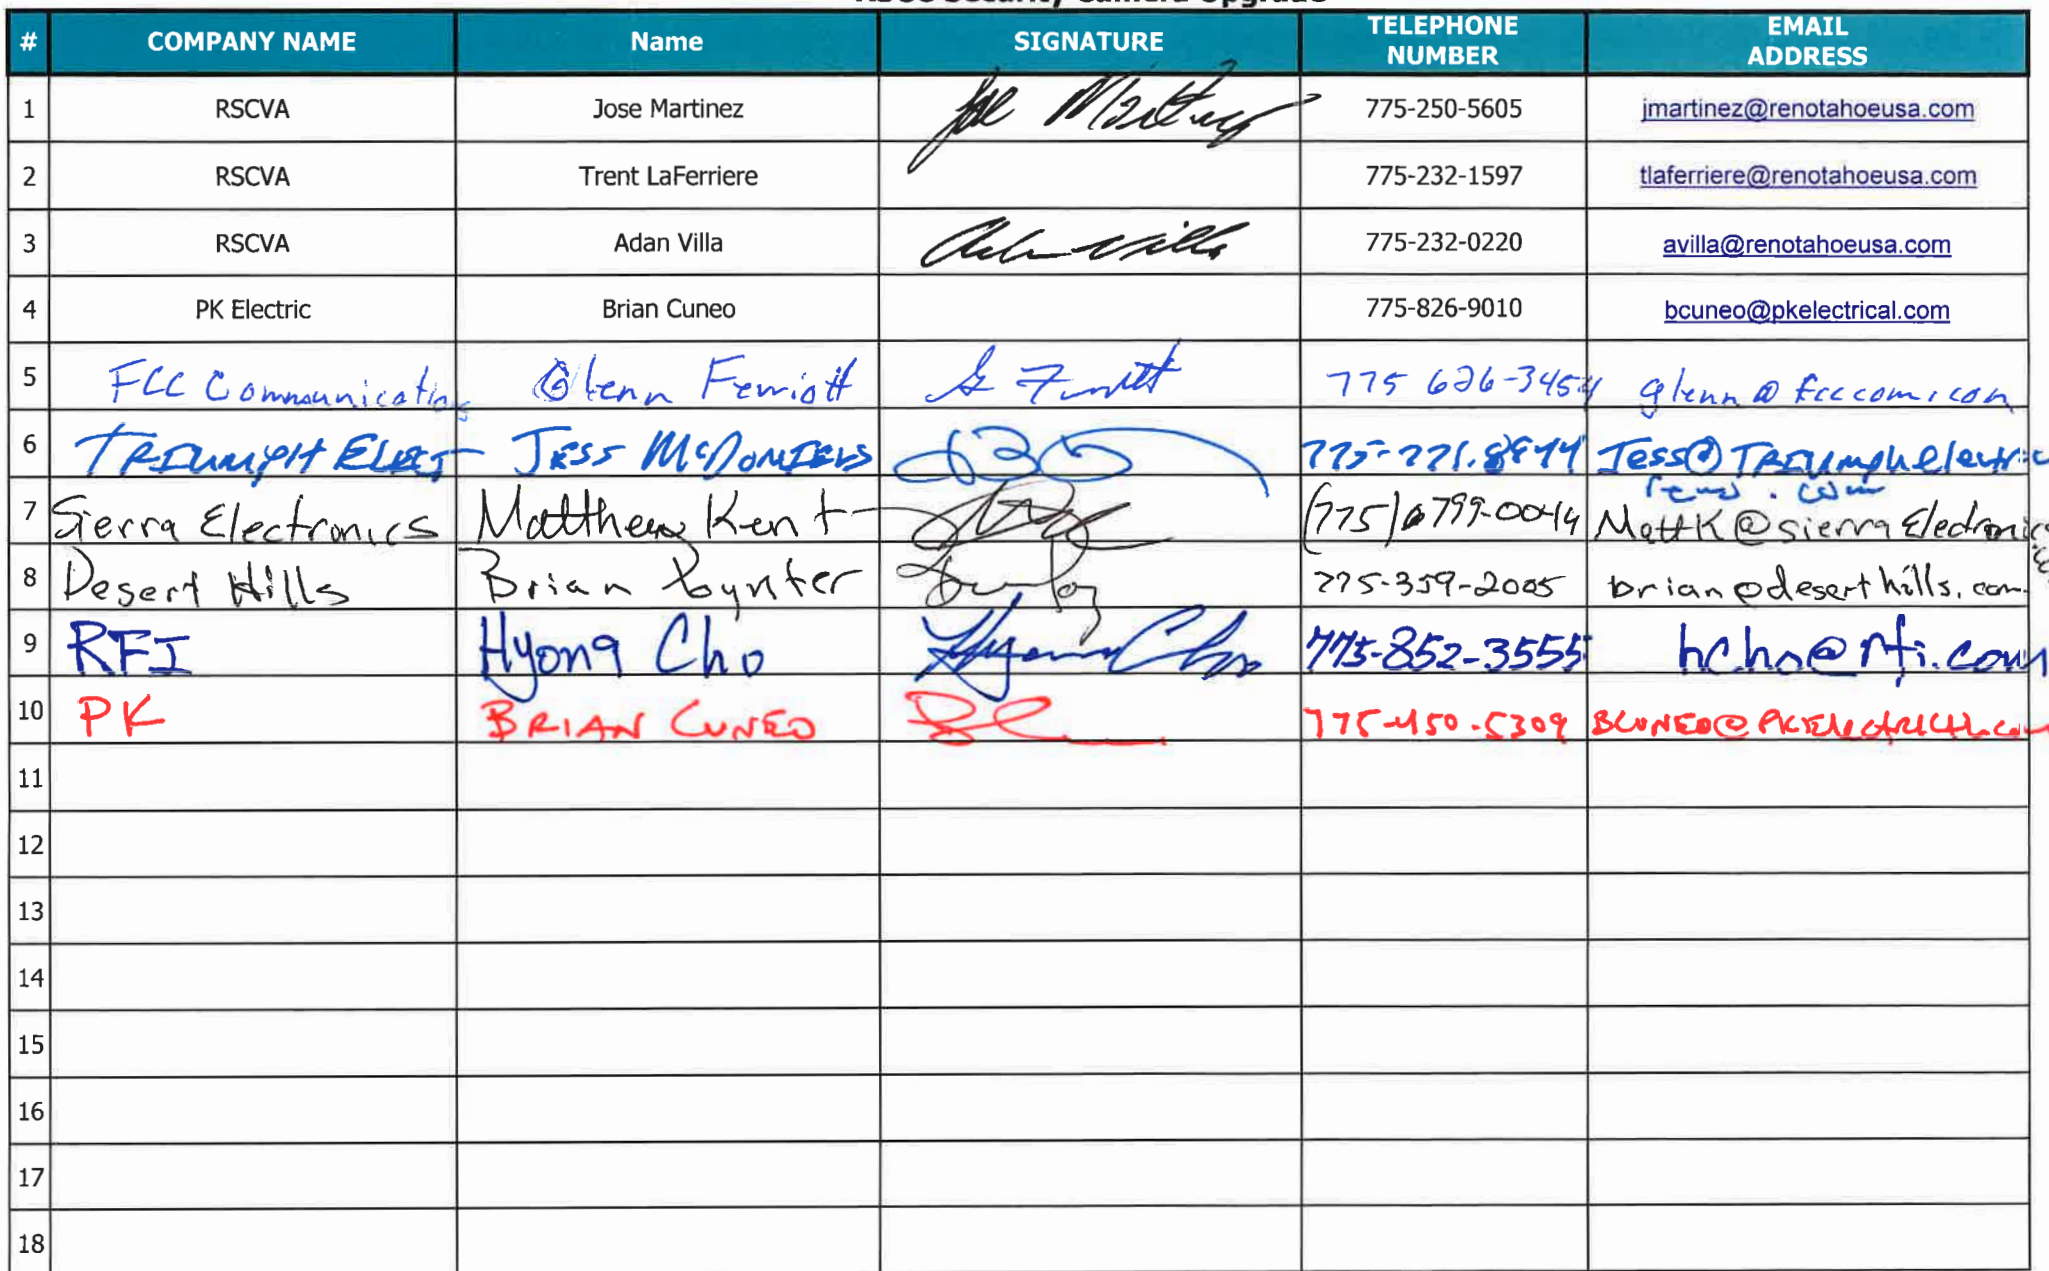 RSCC Security Camera Upgrade
# COMPANY NAME Name SIGNATURE TELEPHONE NUMBER EMAIL ADDRESS
1 RSCVA Jose Martinez Joe Martinez 775-250-5605 jmartinez@renotahoeusa.com
2 RSCVA Trent LaFerriere 775-232-1597 tlaferriere@renotahoeusa.com
3 RSCVA Adan Villa Adan Villa 775-232-0220 avilla@renotahoeusa.com
4 PK Electric Brian Cuneo 775-826-9010 bcuneo@pkelectrical.com
5 FCC Communications Glenn Ferriott 775 626-3454 glenn@fcccom.com
6 TRIUMPH ELECT Jess McDONIELS Jess@TRIUMPHelectric
reno.com
7 Sierra Electronics Matthew Kent MattK@sierra Electronics
8 Desert Hills Brian Poynter 775-359-2005 brian@deserthills.com
9 RFI Hyong Cho Hyong Cho 775-852-3555 hcho@rfi.com
10 PK BRIAN CUNEO 775-450-5309 BCUNEO@PKElectrical.com
11
12
13
14
15
16
17
18